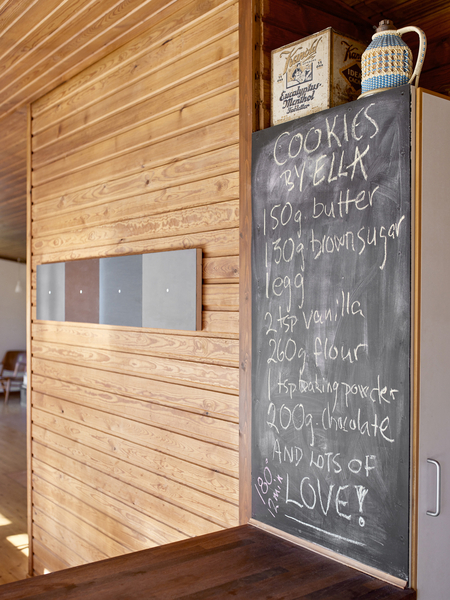 Eucalyptus
Menthol
COOKIES
BY ELLA
150g. butter
130g brown sugar
1 egg
2 tsp vanilla
260g flour
1 tsp baking powder
200g. chocolate
AND LOTS OF
LOVE!
180°
12 min